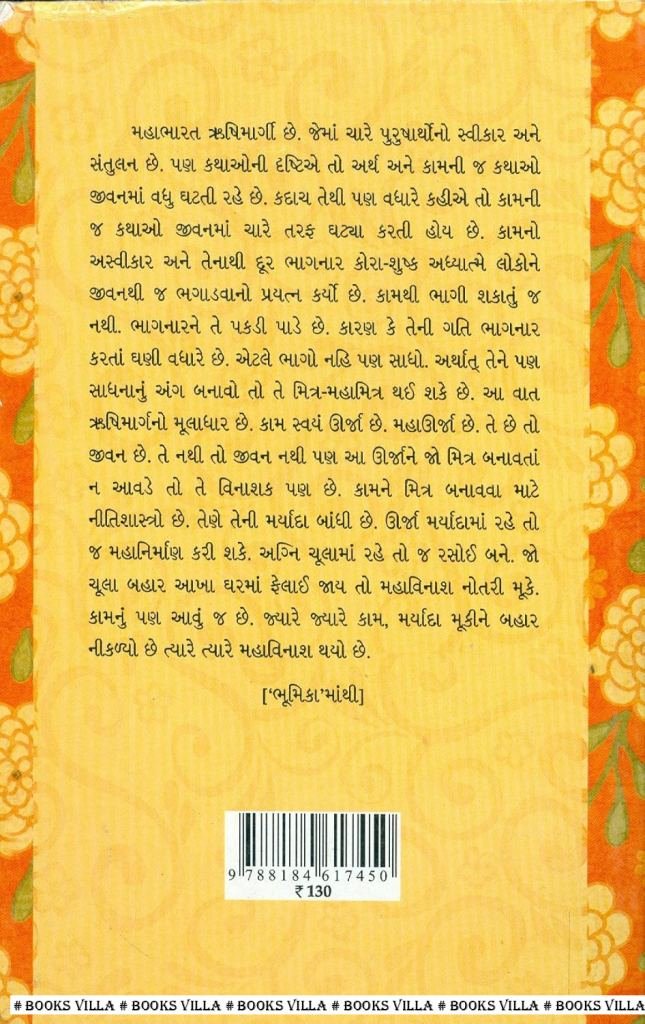 મહાભારત ઋષિમાર્ગી છે. જેમાં ચારે પુરુષાર્થોનો સ્વીકાર અને
સંતુલન છે. પણ કથાઓની દૃષ્ટિએ તો અર્થ અને કામની જ કથાઓ
જીવનમાં વધુ ઘટતી રહે છે. કદાચ તેથી પણ વધારે કહીએ તો કામની
જ કથાઓ જીવનમાં ચારે તરફ ઘટ્યા કરતી હોય છે. કામનો
અસ્વીકાર અને તેનાથી દૂર ભાગનાર કોરા-શુષ્ક અધ્યાત્મે લોકોને
જીવનથી જ ભગાડવાનો પ્રયત્ન કર્યો છે. કામથી ભાગી શકાતું જ
નથી. ભાગનારને તે પકડી પાડે છે. કારણ કે તેની ગતિ ભાગનાર
કરતાં ઘણી વધારે છે. એટલે ભાગો નહિ પણ સાધો. અર્થાત્ તેને પણ
સાધનાનું અંગ બનાવો તો તે મિત્ર-મહામિત્ર થઈ શકે છે. આ વાત
ઋષિમાર્ગનો મૂલાધાર છે. કામ સ્વયં ઊર્જા છે. મહાઊર્જા છે. તે છે તો
જીવન છે. તે નથી તો જીવન નથી પણ આ ઊર્જાને જો મિત્ર બનાવતાં
ન આવડે તો તે વિનાશક પણ છે. કામને મિત્ર બનાવવા માટે
નીતિશાસ્ત્રો છે. તેણે તેની મર્યાદા બાંધી છે. ઊર્જા મર્યાદામાં રહે તો
જ મહાનિર્માણ કરી શકે. અગ્નિ ચૂલામાં રહે તો જ રસોઈ બને. જો
ચૂલા બહાર આખા ઘરમાં ફેલાઈ જાય તો મહાવિનાશ નોતરી મૂકે.
કામનું પણ આવું જ છે. જ્યારે જ્યારે કામ, મર્યાદા મૂકીને બહાર
નીકળ્યો છે ત્યારે ત્યારે મહાવિનાશ થયો છે.
[‘ભૂમિકા’માંથી]
9 788184 617450
₹ 130
# BOOKS VILLA # BOOKS VILLA # BOOKS VILLA # BOOKS VILLA # BOOKS VILLA # BOOKS VILLA